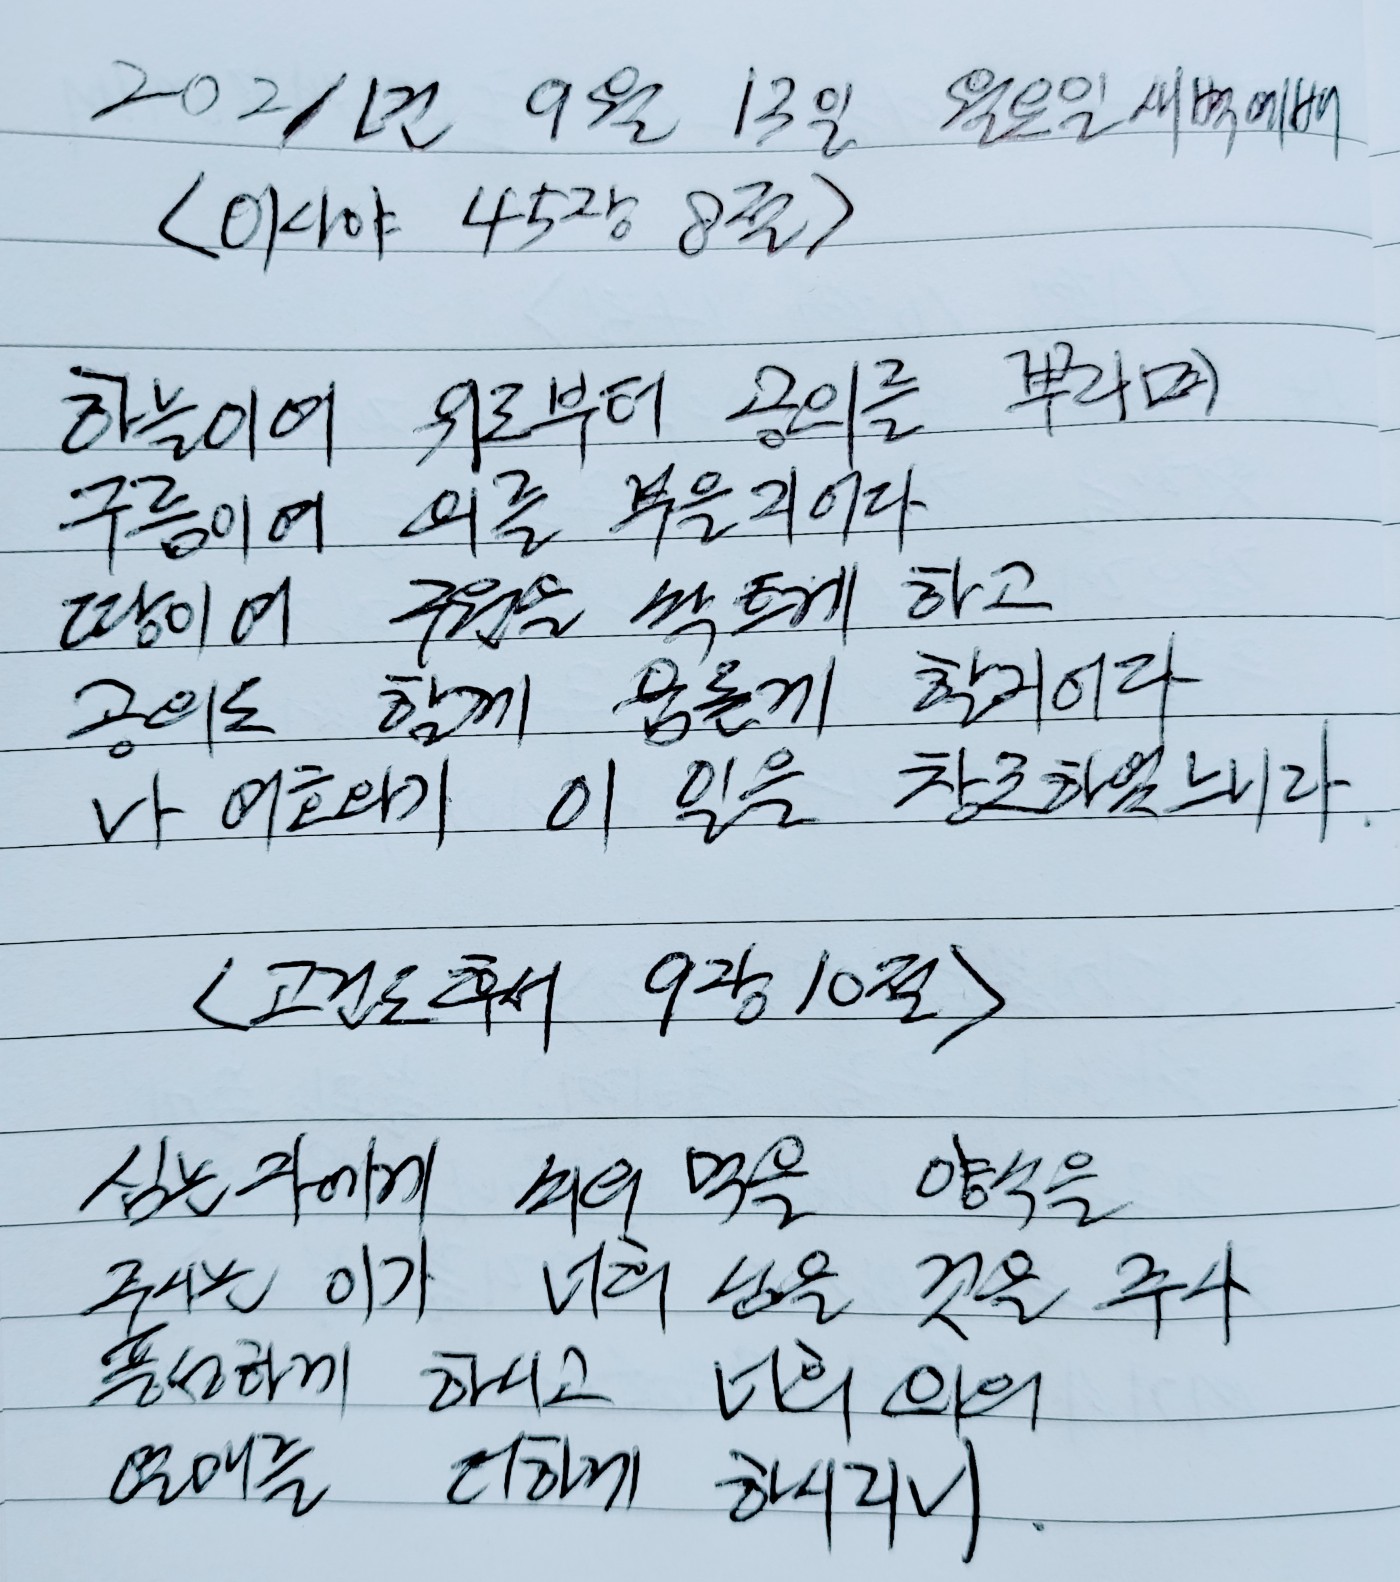 2021년 9월 13일 월요일 새벽예배
<이사야 45장 8절>
하늘이여 위로부터 공의를 뿌리며
구름이여 의를 부을지어다
땅이여 구원을 싹트게 하고
공의도 함께 움돋게 할지어다
나 여호와가 이 일을 창조하였느니라.
<고린도후서 9장 10절>
심는 자에게 씨와 먹을 양식을
주시는 이가 너희 심을 것을 주사
풍성하게 하시고 너희 의의
열매를 더하게 하시리니.